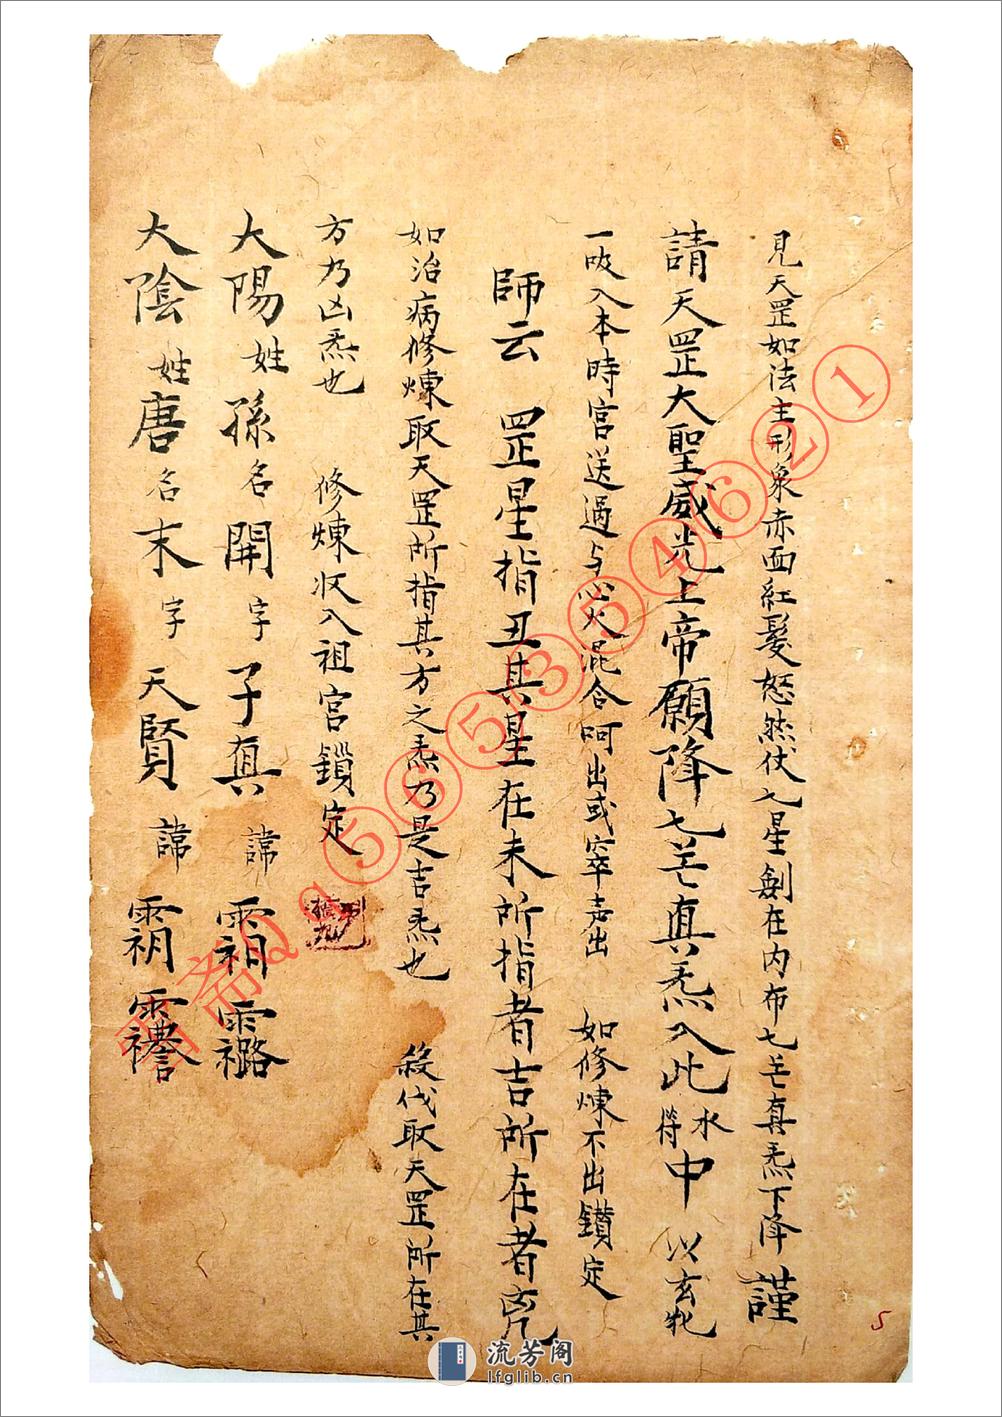 見天罡如法主形象赤面紅髮怒然仗七星劍在内布七芒真炁下降 謹
請天罡大聖威光上帝願降七芒真炁入此水符中 以玄牝
一吸入本時宮送過与心火混合呵出或窣声出 如修煉不出鑚定
師云 罡星指丑其星在未所指者吉所在者凶
如治病修煉取天罡所指其方之炁乃是吉炁也 殺伐取天罡所在其
方乃凶炁也 修煉收入祖宮鎖定
大陽姓孫名開字子真 諱
大陰姓唐名末字天賢 諱
雪斋Qq565354621
流芳阁
lfglib.cn
5